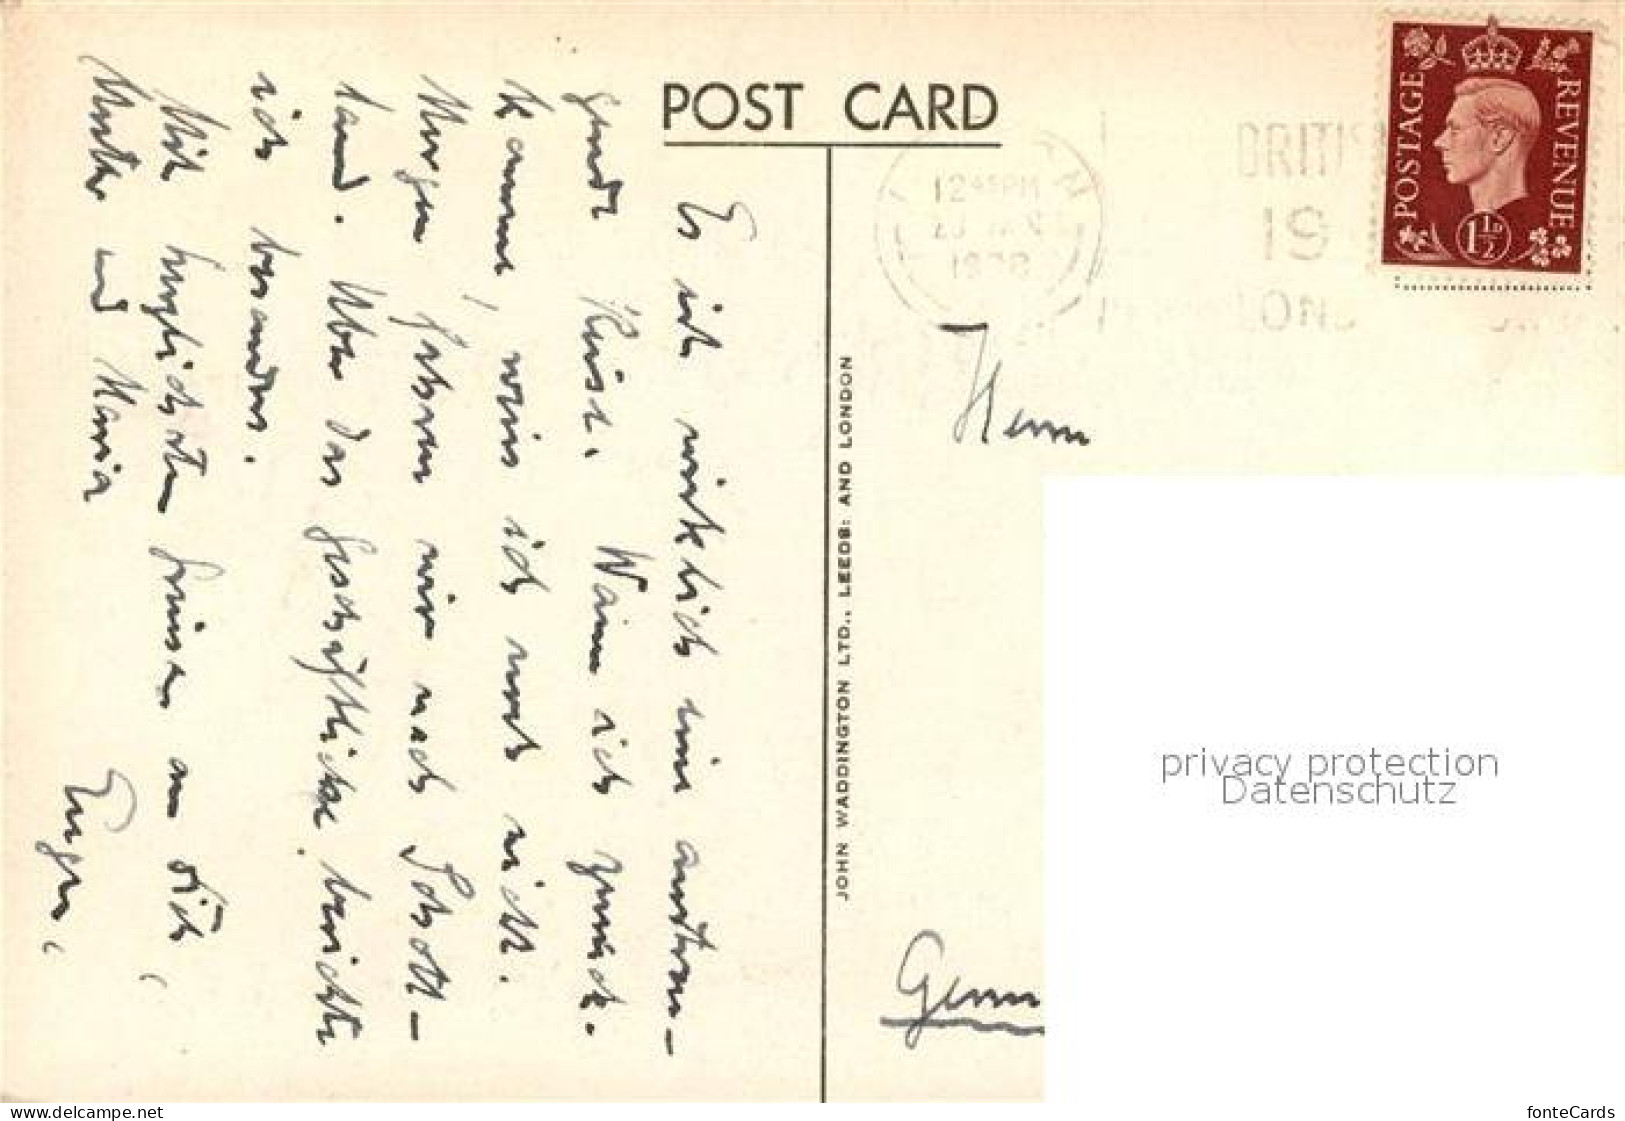 POST CARD
POSTAGE
REVENUE
1½D
12 45 PM
1938
BRITIS
19
LON
JOHN WADDINGTON LTD., LEEDS: AND LONDON
Es ist wirklich eine anstren-
gende Reise. Wann ich zurück-
komme, weiss ich noch nicht.
Morgen fahren wir nach Schott-
land. Über das Geschäftliche berichte
ich besonders.
Mit herzlichsten Grüssen an Dich,
Mutter und Maria
Eugen.
Herrn
Germ
privacy protection
Datenschutz
www.delcampe.net
fonteCards